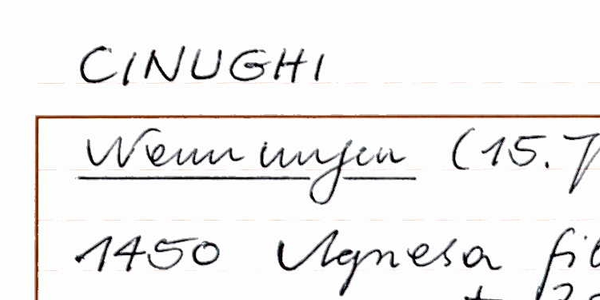 CINUGHI
Nennungen (15.
1450 Agnesa fil